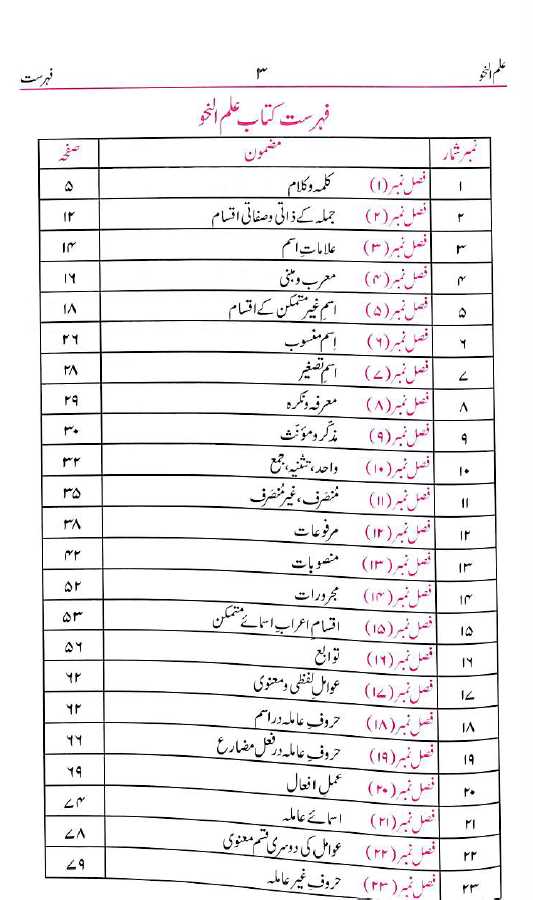 علم النحو ۳ فہرست
فہرست کتاب علم النحو
نمبر شمار مضمون صفحہ
۱ فصل نمبر (۱) کلمہ وکلام ۵
۲ فصل نمبر (۲) جملہ کے ذاتی وصفاتی اقسام ۱۲
۳ فصل نمبر (۳) علاماتِ اسم ۱۴
۴ فصل نمبر (۴) معرب ومبنی ۱۶
۵ فصل نمبر (۵) اسمِ غیر متمکن کے اقسام ۱۸
۶ فصل نمبر (۶) اسم منسوب ۲۶
۷ فصل نمبر (۷) اسمِ تصغیر ۲۸
۸ فصل نمبر (۸) معرفہ ونکرہ ۲۹
۹ فصل نمبر (۹) مذکر ومؤنث ۳۰
۱۰ فصل نمبر (۱۰) واحد، تثنیہ، جمع ۳۲
۱۱ فصل نمبر (۱۱) مُنصَرف، غیر مُنصَرف ۳۵
۱۲ فصل نمبر (۱۲) مرفوعات ۳۸
۱۳ فصل نمبر (۱۳) منصوبات ۴۲
۱۴ فصل نمبر (۱۴) مجرورات ۵۲
۱۵ فصل نمبر (۱۵) اقسام اعراب اسمائے متمکن ۵۳
۱۶ فصل نمبر (۱۶) توابع ۵۶
۱۷ فصل نمبر (۱۷) عوامل لفظی ومعنوی ۶۲
۱۸ فصل نمبر (۱۸) حروف عاملہ در اسم ۶۲
۱۹ فصل نمبر (۱۹) حروف عاملہ در فعل مضارع ۶۶
۲۰ فصل نمبر (۲۰) عمل افعال ۶۹
۲۱ فصل نمبر (۲۱) اسمائے عاملہ ۷۴
۲۲ فصل نمبر (۲۲) عوامل کی دوسری قسم معنوی ۷۸
۲۳ فصل نمبر (۲۳) حروف غیر عاملہ ۷۹